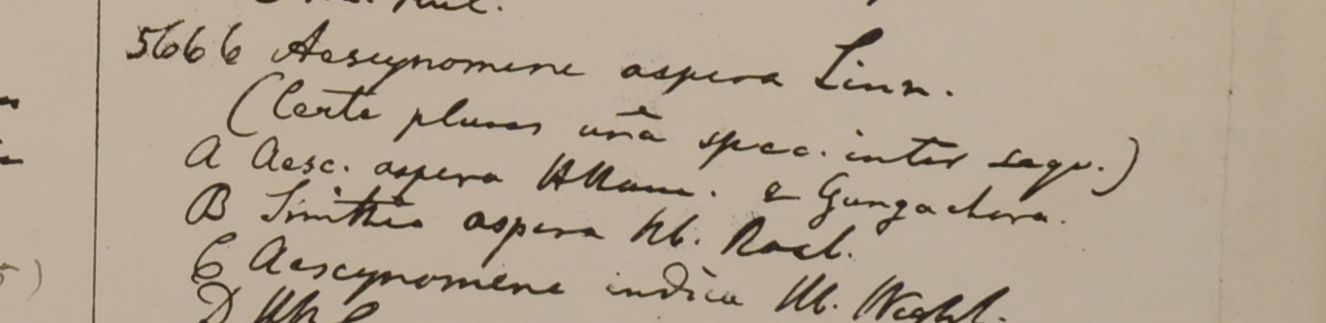 5666 Aescynomene aspera Linn.
(Certe plures unâ spec. inter sequ.)
A Aesc. aspera HHam. e Gungachora.
B Smithia aspera hb. Roxb.
C Aescynomene indica Hb. Wight.
D